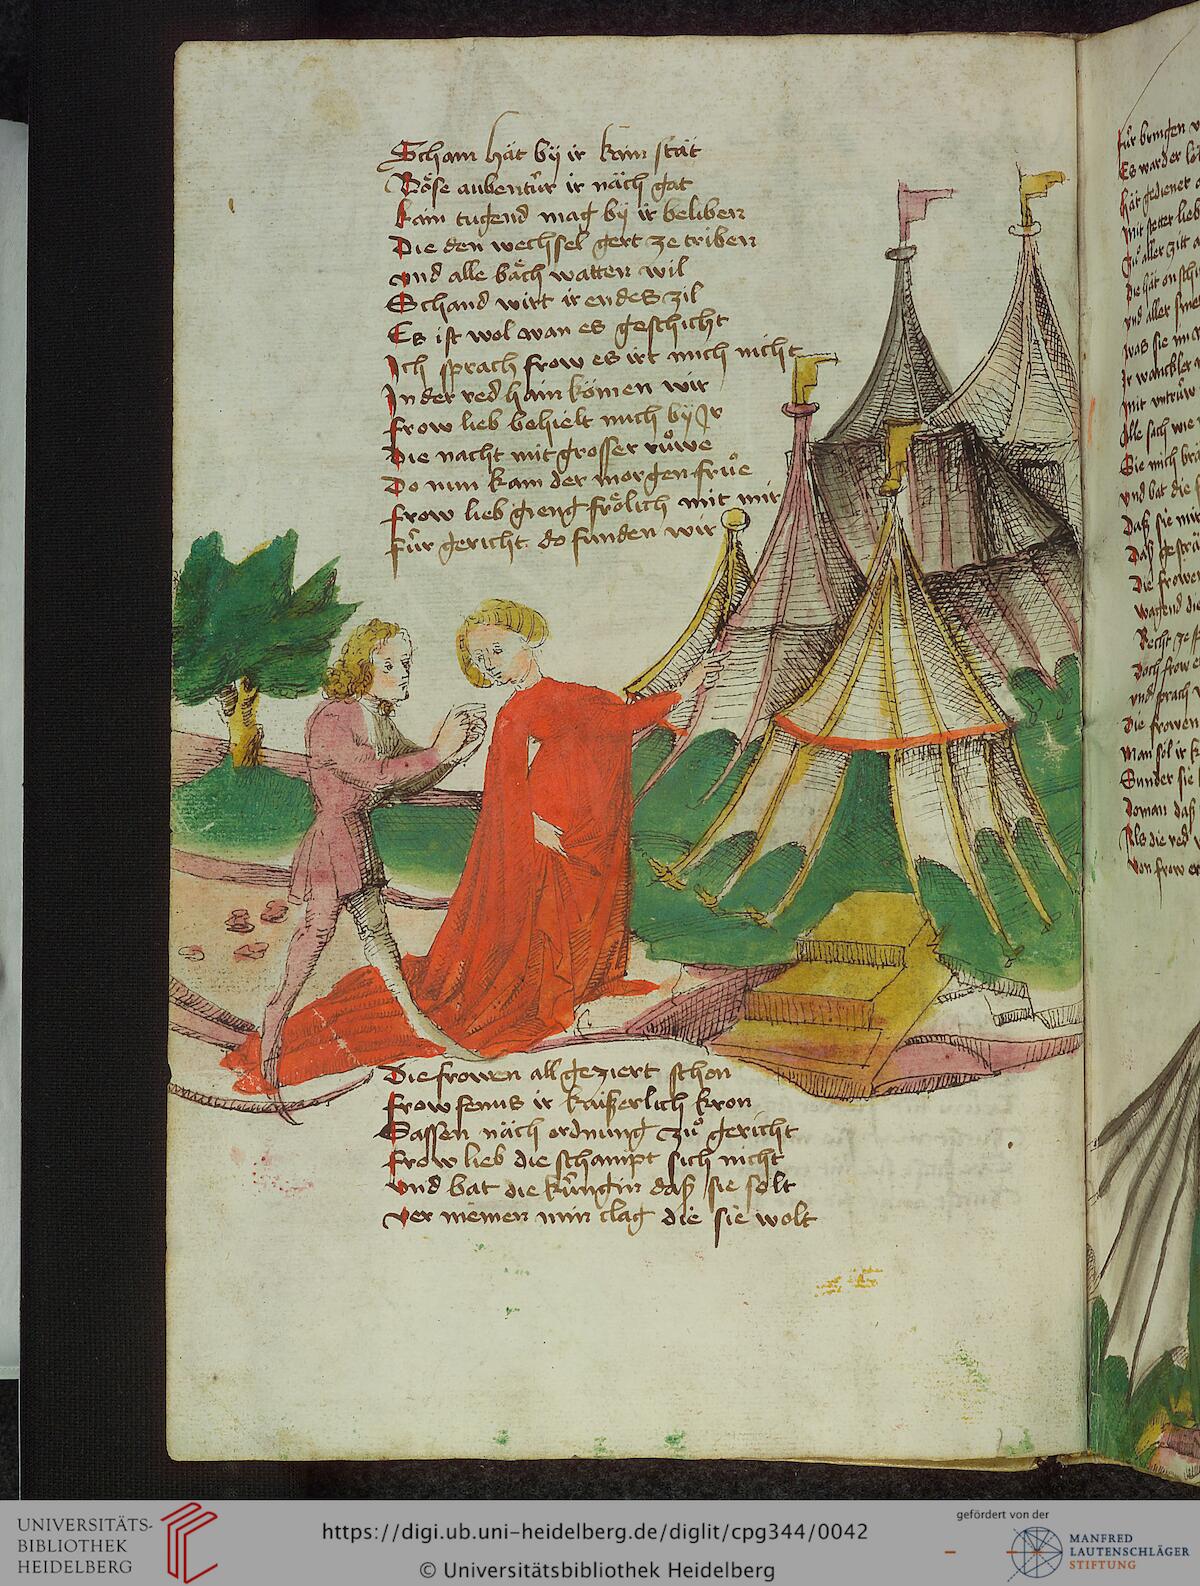 Scham hät by ir kain stät
Böse aubentür ir näch gat
kain tugend mag by ir beliben
Die den wechsel gert ze triben
vnd alle bäch watten wil
Schand wirt ir endes zil
Es ist wol wan es geschicht
Ich sprach frow es irt mich nicht
In der red hain kömen wir
frow lieb behielt mich by Jr
Die nacht mit grosser růwe
Do nun kam der morgen frůe
frow lieb gieng frölich mit mir
für gericht do funden wir
Die frowen all geziert schon
frow fenus ir kaiserlich kron
Sassen näch ordnung zů gericht
frow lieb die schampt sich nicht
vnd bat die küngin daß sie solt
ver nemen min clag die sie wolt
für bringen
Es ward er
hät gedienet
mit stetter lieb
vnd aller
was sie mich
Jr wanckler
mit vntrüw
Alle sach wie
Sie mich
vnd bat die
Daß sie mir
Daß
Die frowen
wagend die
Recht ze
Doch frow
vnd sprach
Die frowen
Man sol ir
Sunder sie
Doman daß
Als die red
Von frow er
UNIVERSITÄTS-
BIBLIOTHEK
HEIDELBERG
https://digi.ub.uni-heidelberg.de/diglit/cpg344/0042
© Universitätsbibliothek Heidelberg
gefördert von der
MANFRED
LAUTENSCHLÄGER
STIFTUNG